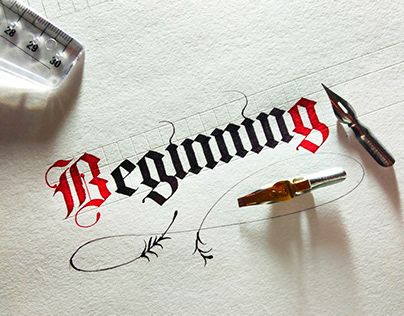 28 29 30
Beginning